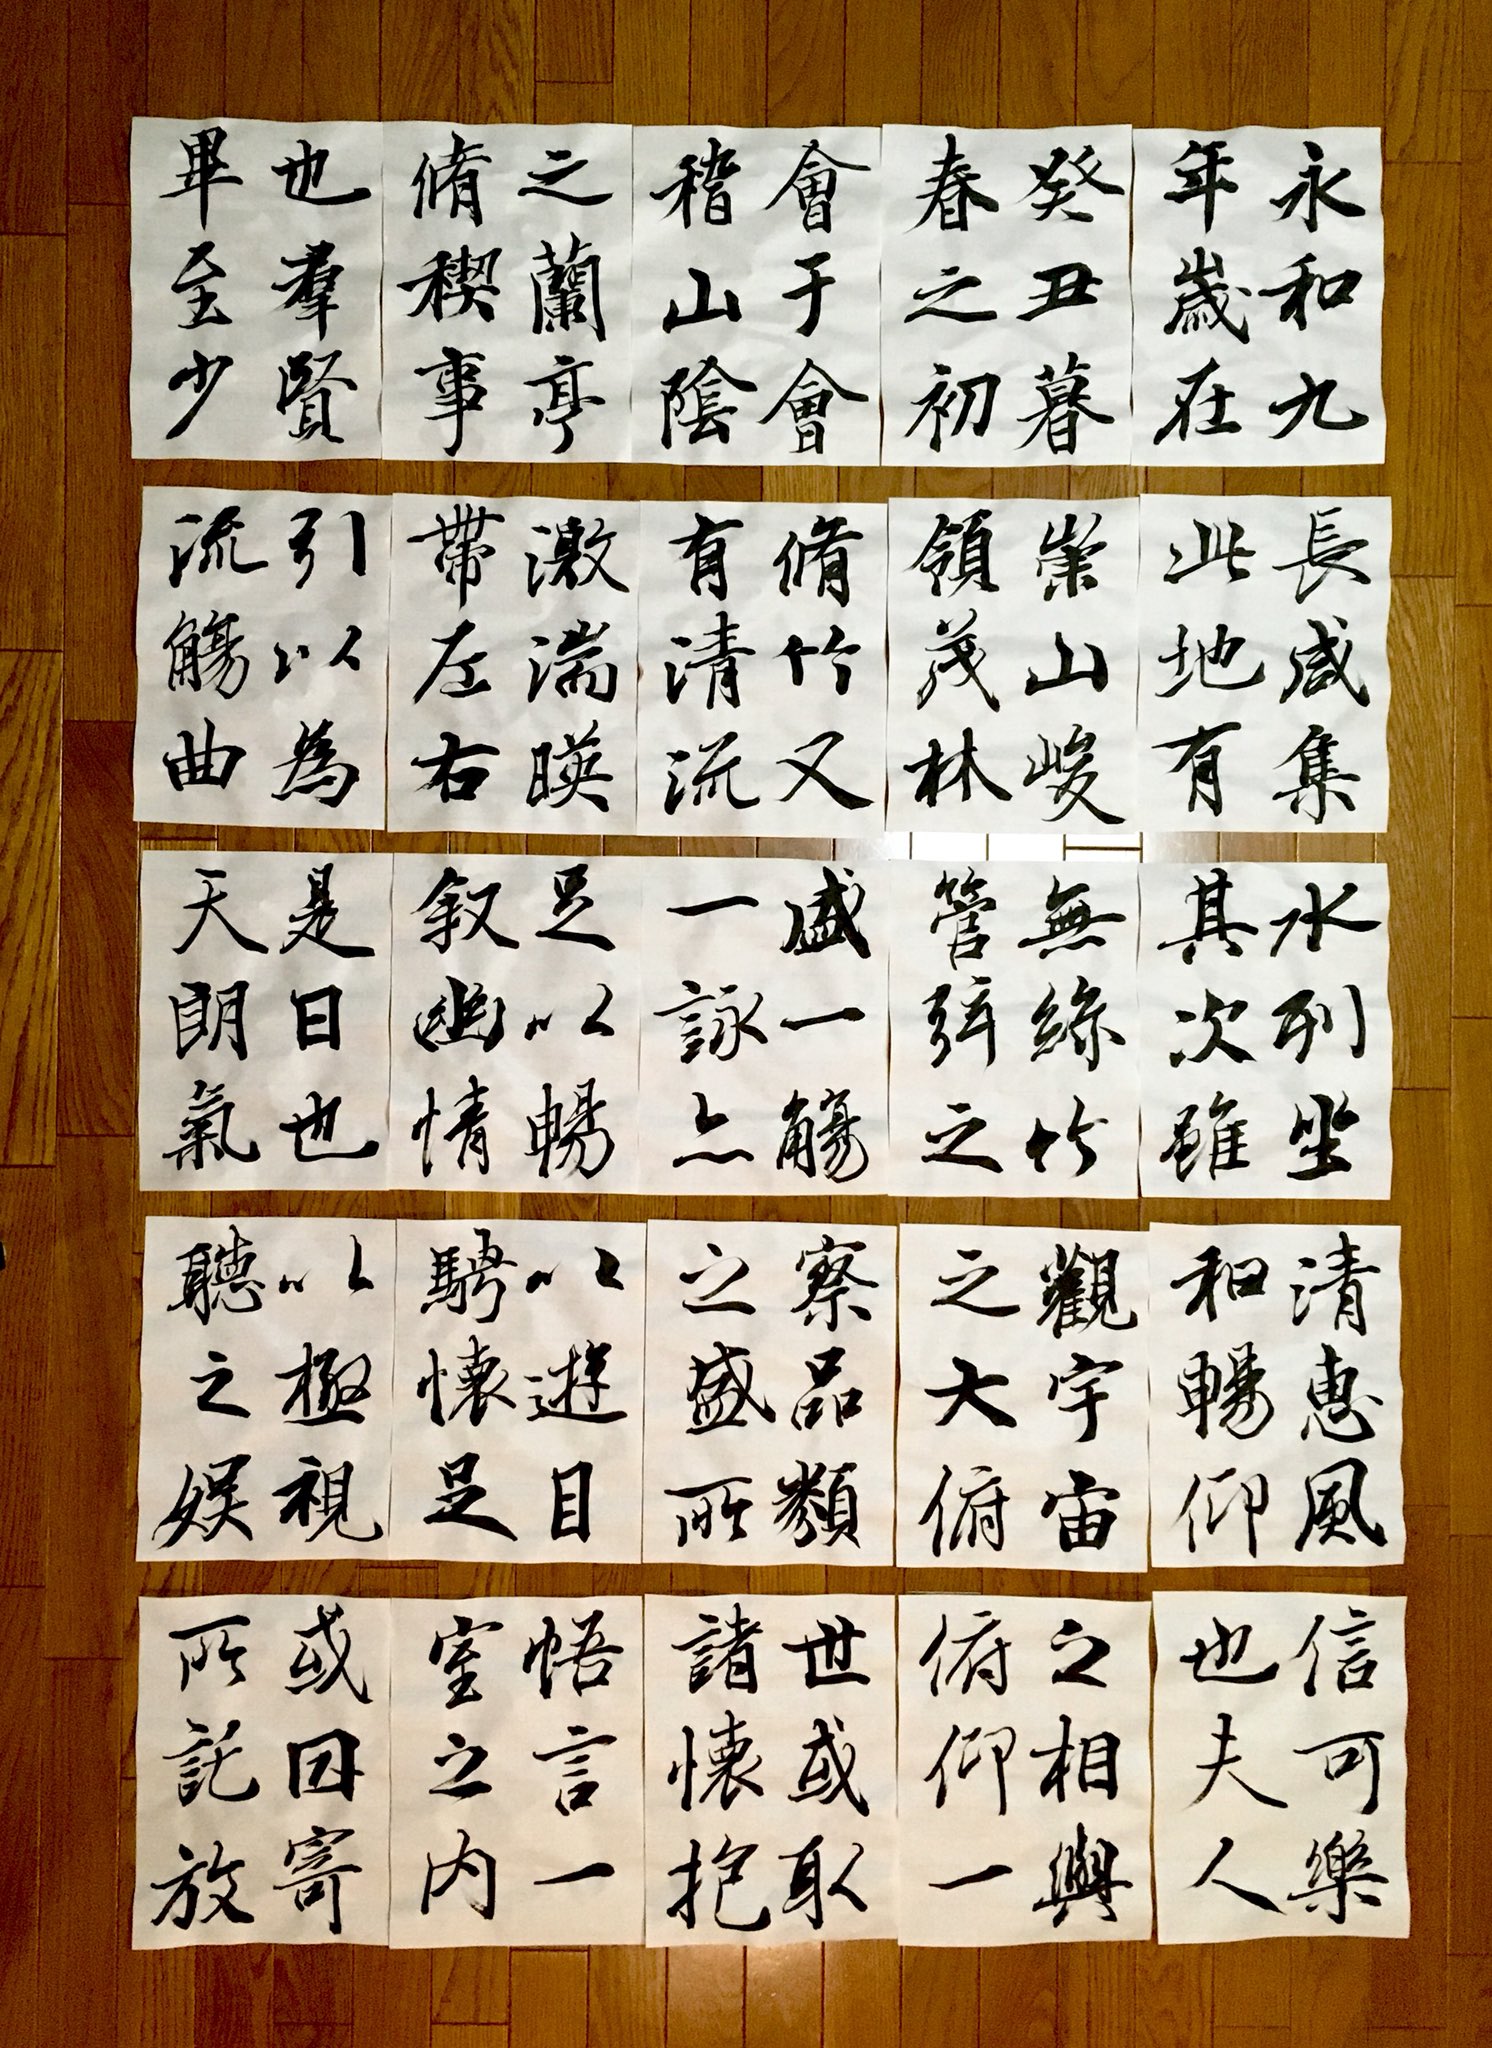 永和九
年歲在
癸丑暮
春之初
會于會
稽山陰
之蘭亭
脩稧事
也羣賢
畢至少
長咸集
此地有
崇山峻
領茂林
脩竹又
有清流
激湍暎
帶左右
引以為
流觴曲
水列坐
其次雖
無絲竹
管弦之
盛一觴
一詠亦
足以暢
叙幽情
是日也
天朗氣
清惠風
和暢仰
觀宇宙
之大俯
察品類
之盛所
以遊目
騁懷足
以極視
聽之娛
信可樂
也夫人
之相與
俯仰一
世或取
諸懷抱
悟言一
室之內
或因寄
所託放